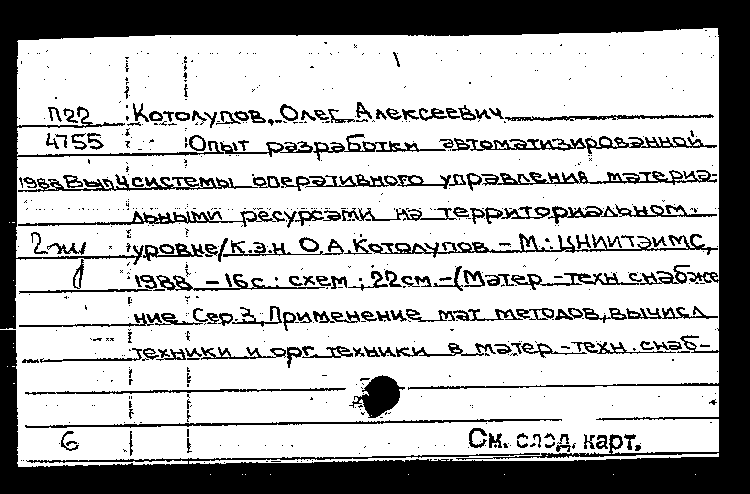 П22 Котолупов, Олег Алексеевич
4755 Опыт разработки автоматизированной
1988 Вып 4 системы оперативного управления материа-
льными ресурсами на территориальном
2 уровне/к.э.н. О.А.Котолупов. – М.: ЦНИИТЭИМС,
1988 – 16с.: схем ; 22см.–(Матер.-техн снабже
ние. Сер.3, Применение мат методов, вычисл
техники и орг. техники в матер.-техн. снаб-
6 См. след. карт.